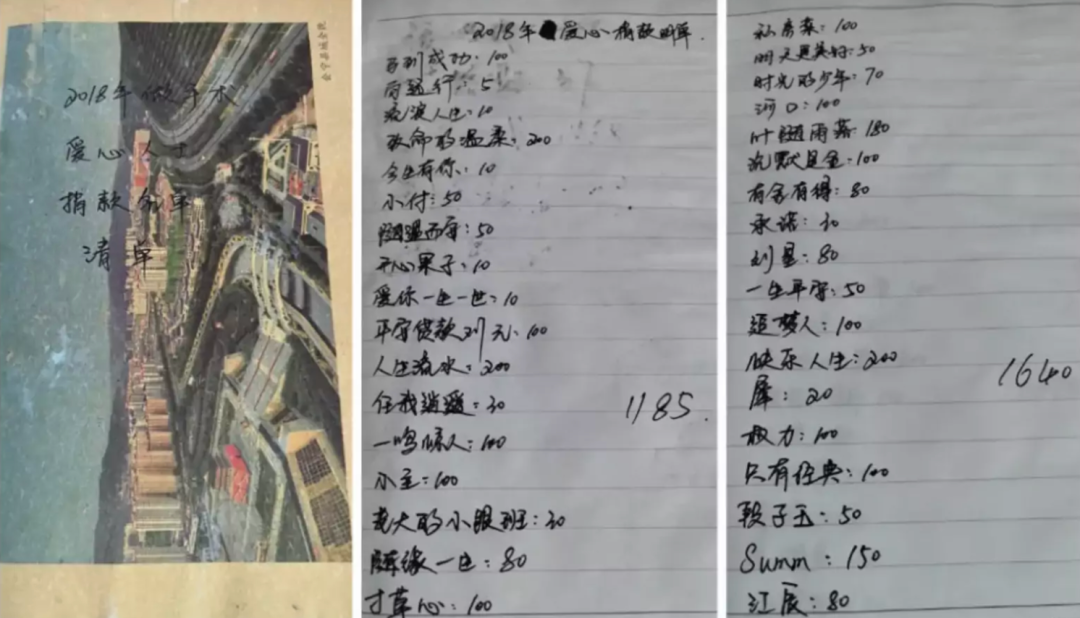 2018年做手术
爱心人士
捐款名单
清单
2018年爱心捐款明单.
马到成功:100
雨越行:5
浪漫人生:10
致命的温柔:200
今生有你:10
小付:50
随遇而安:50
开心果子:10
爱你一生一世:10
平安贷款刘元:100
人生流水:200
任我逍遥:30
一鸣惊人:100
小主:100
老大的小跟班:30
随缘一生:80
寸草心:100
1185.
私房菜:100
明天更美好:50
时光的少年:70
河口:100
叶随雨落:180
沉默是金:100
有舍有得:80
承诺:30
刘星:80
一生平安:50
追梦人:100
快乐人生:200
犀:20
权力:100
只有经典:100
段子玉:50
Summ:150
江辰:80
1640